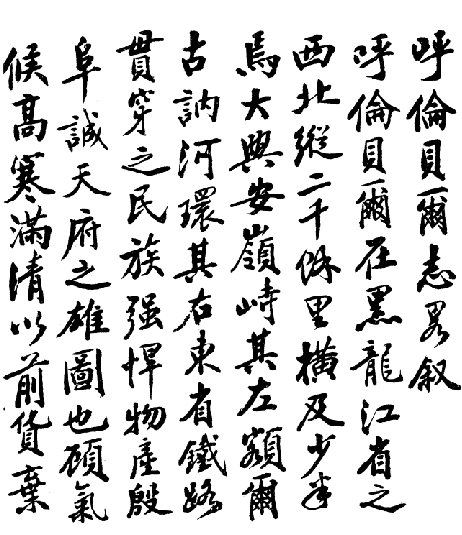 呼倫貝爾志畧叙
呼倫貝爾在黑龍江省之
西北縱二千餘里橫及少半
焉大興安嶺峙其左額爾
古訥河環其右東省鐵路
貫穿之民族强悍物產殷
阜誠天府之雄圖也碩氣
候高寒滿清以前貨棄